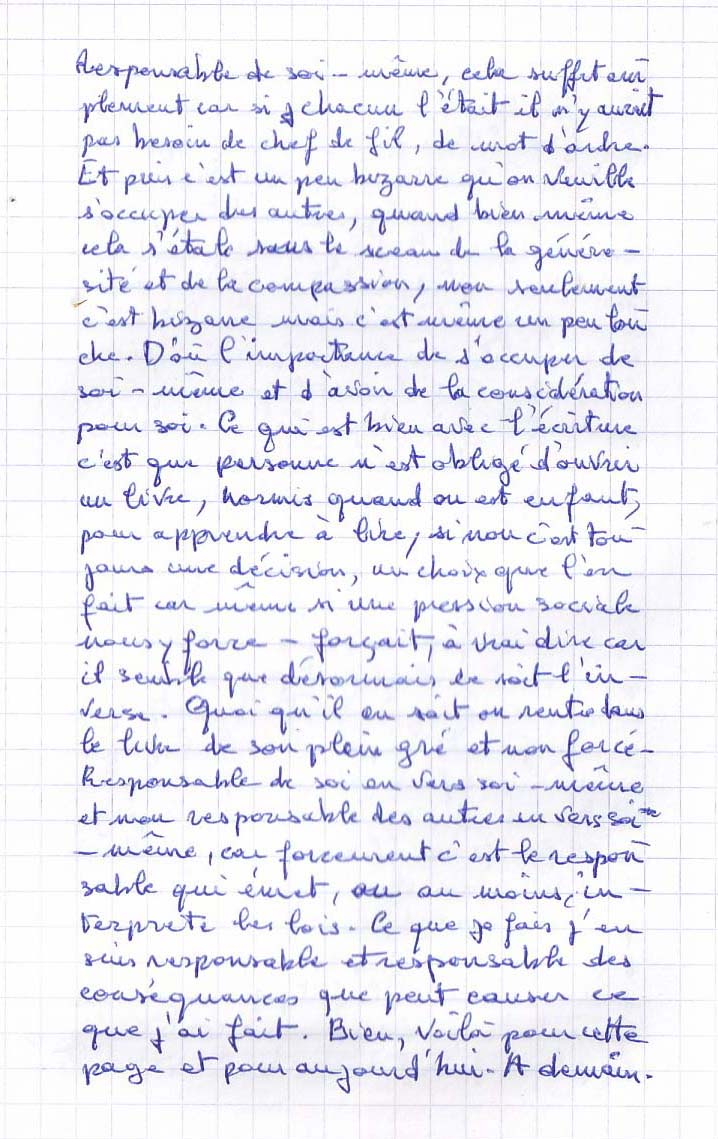 Responsable de soi-même, cela suffit am
plement car si chacun l'était il n'y aurait
pas besoin de chef de fil, de mot d'ordre.
Et puis c'est un peu bizarre qu'on veuille
s'occuper des autres, quand bien même
cela s'étale sous le sceau de la généro-
sité et de la compassion, non seulement
c'est bizarre mais c'est même un peu lou
che. D'où l'importance de s'occuper de
soi-même et d'avoir de la considération
pour soi. Ce qui est bien avec l'écriture
c'est que personne n'est obligé d'ouvrir
un livre, hormis quand on est enfant,
pour apprendre à lire, sinon c'est tou
jours une décision, un choix que l'on
fait car même si une pression sociale
nous y force - forçait, à vrai dire car
il semble que désormais ce soit l'in-
verse. Quoi qu'il en soit on rentre dans
le livre de son plein gré et non forcé-
Responsable de soi en vers soi-même
et non responsable des autres en vers soi
-même, car forcement c'est le respon
sable qui émet, ou au moins, in-
terprete les lois. Ce que je fais j'en
suis responsable et responsable des
conséquances que peut causer ce
que j'ai fait. Bien, voilà pour cette
page et pour aujourd'hui. A demain.